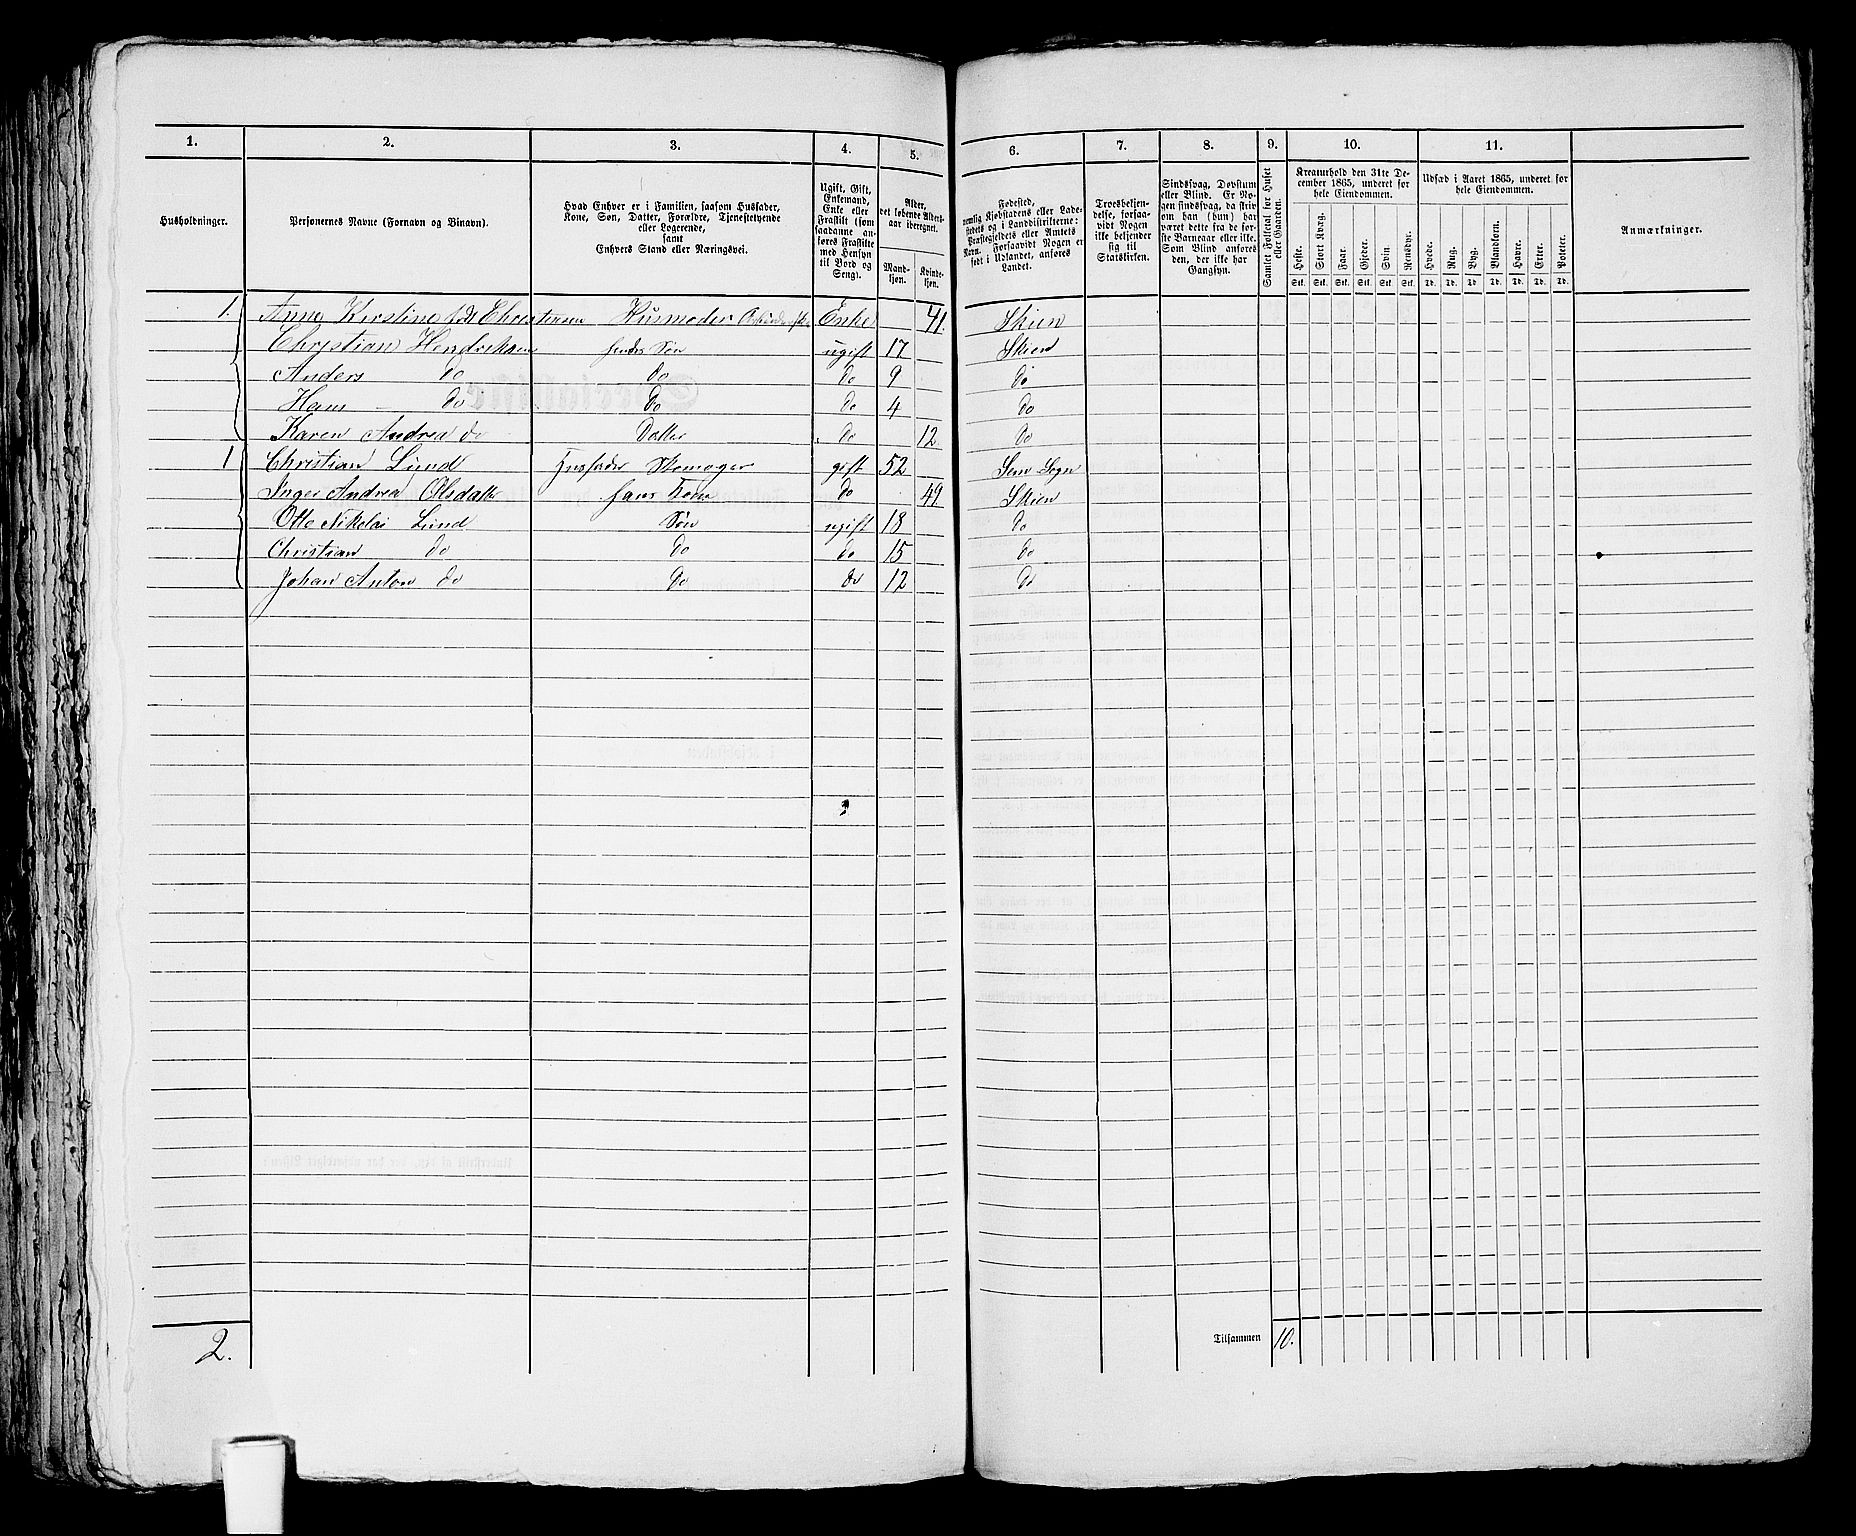 1. 2. 3. 4. 5. 6. 7. 8. 9. 10. 11.
Husholdninger.
Personernes Navne (Fornavn og Binavn).
Hvad Enhver er i Familien, saasom Husfader,
Kone, Søn, Datter, Forældre, Tjenestetyende
eller Logerende,
samt
Enhvers Stand eller Næringsvei.
Ugift, Gift,
Enkemand,
Enke eller
Fraskilt (som
saadanne an-
føres Fraskilte
med Hensyn
til Bord og
Seng).
Alder,
det løbende Alders-
aar iberegnet.
Mand-
kjøn.
Kvinde-
kjøn.
Fødested,
nemlig Kjøbstadens eller Lade-
stedets og i Landdistrikterne:
Præstegjeldets eller Amtets
Navn. Forsaavidt Nogen er
født i Udlandet, anføres
Landet.
Troesbekjen-
delse, forsaa-
vidt Nogen
ikke bekjender
sig til
Statskirken.
Sindssvag, Døvstum
eller Blind. Er No-
gen sindssvag, da skriv
om han (hun) har
været dette fra de før-
ste Barneaar eller ikke.
Som Blind anføres
den, der ikke har
Gangsyn.
Samlet Folketal for Huset
eller Gaarden.
Kreaturhold den 31te De-
cember 1865, underet for
hele Eiendommen.
Heste. Stort Kvæg. Faar. Gjeder. Svin. Rensdyr.
Stk. Stk. Stk. Stk. Stk. Stk.
Udsæd i Aaret 1865, underet for
hele Eiendommen.
Hvede. Rug. Byg. Blandkorn. Havre. Erter. Poteter.
Td. Td. Td. Td. Td. Td. Td.
Anmærkninger.
1. Anne Kirstine født Christensen Husmoder Enke 41. Skien
Christian Hendriksen hendes Søn ugift 17 Skien
Anders do do do 9 do
Hans do do do 4 do
Karen Andrea do Datter do 12 do
1 Christian Lund Husfader Skomager gift 52 Sem Sogn
Inger Andrea Olsdatter hans Kone do 49 Skien
Otto Nikolai Lund Søn ugift 18 do
Christian do do do 15 do
Johan Anton do do do 12 do
2.
Tilsammen 10.